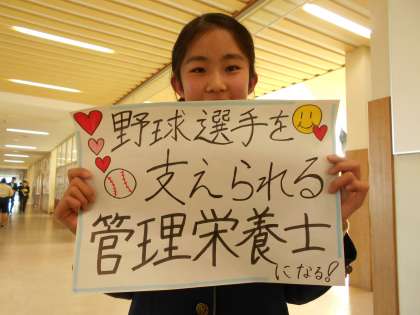 野球選手を
支えられる
管理栄養士
になる!